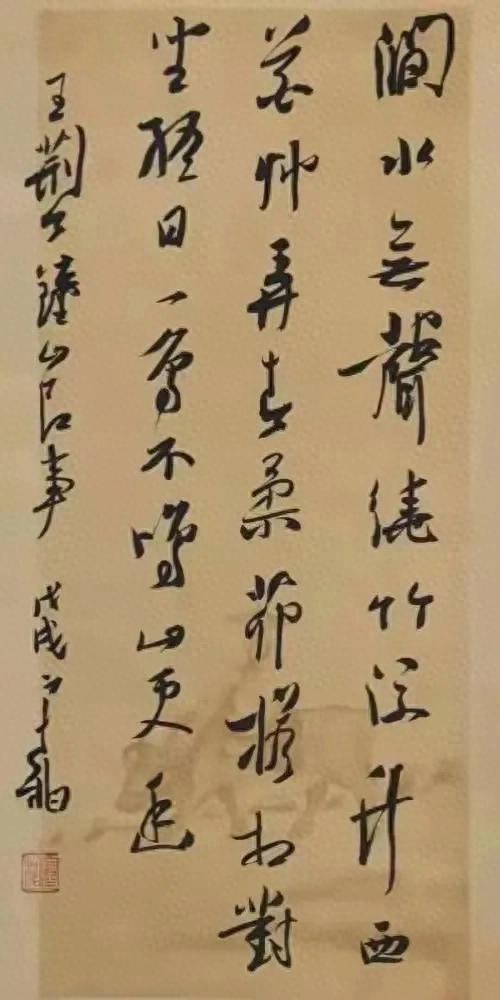 澗水無聲繞竹流竹西
花艸弄春柔茆檐相對
坐終日一鳥不鳴山更幽
王荆公鍾山即事 戊戌